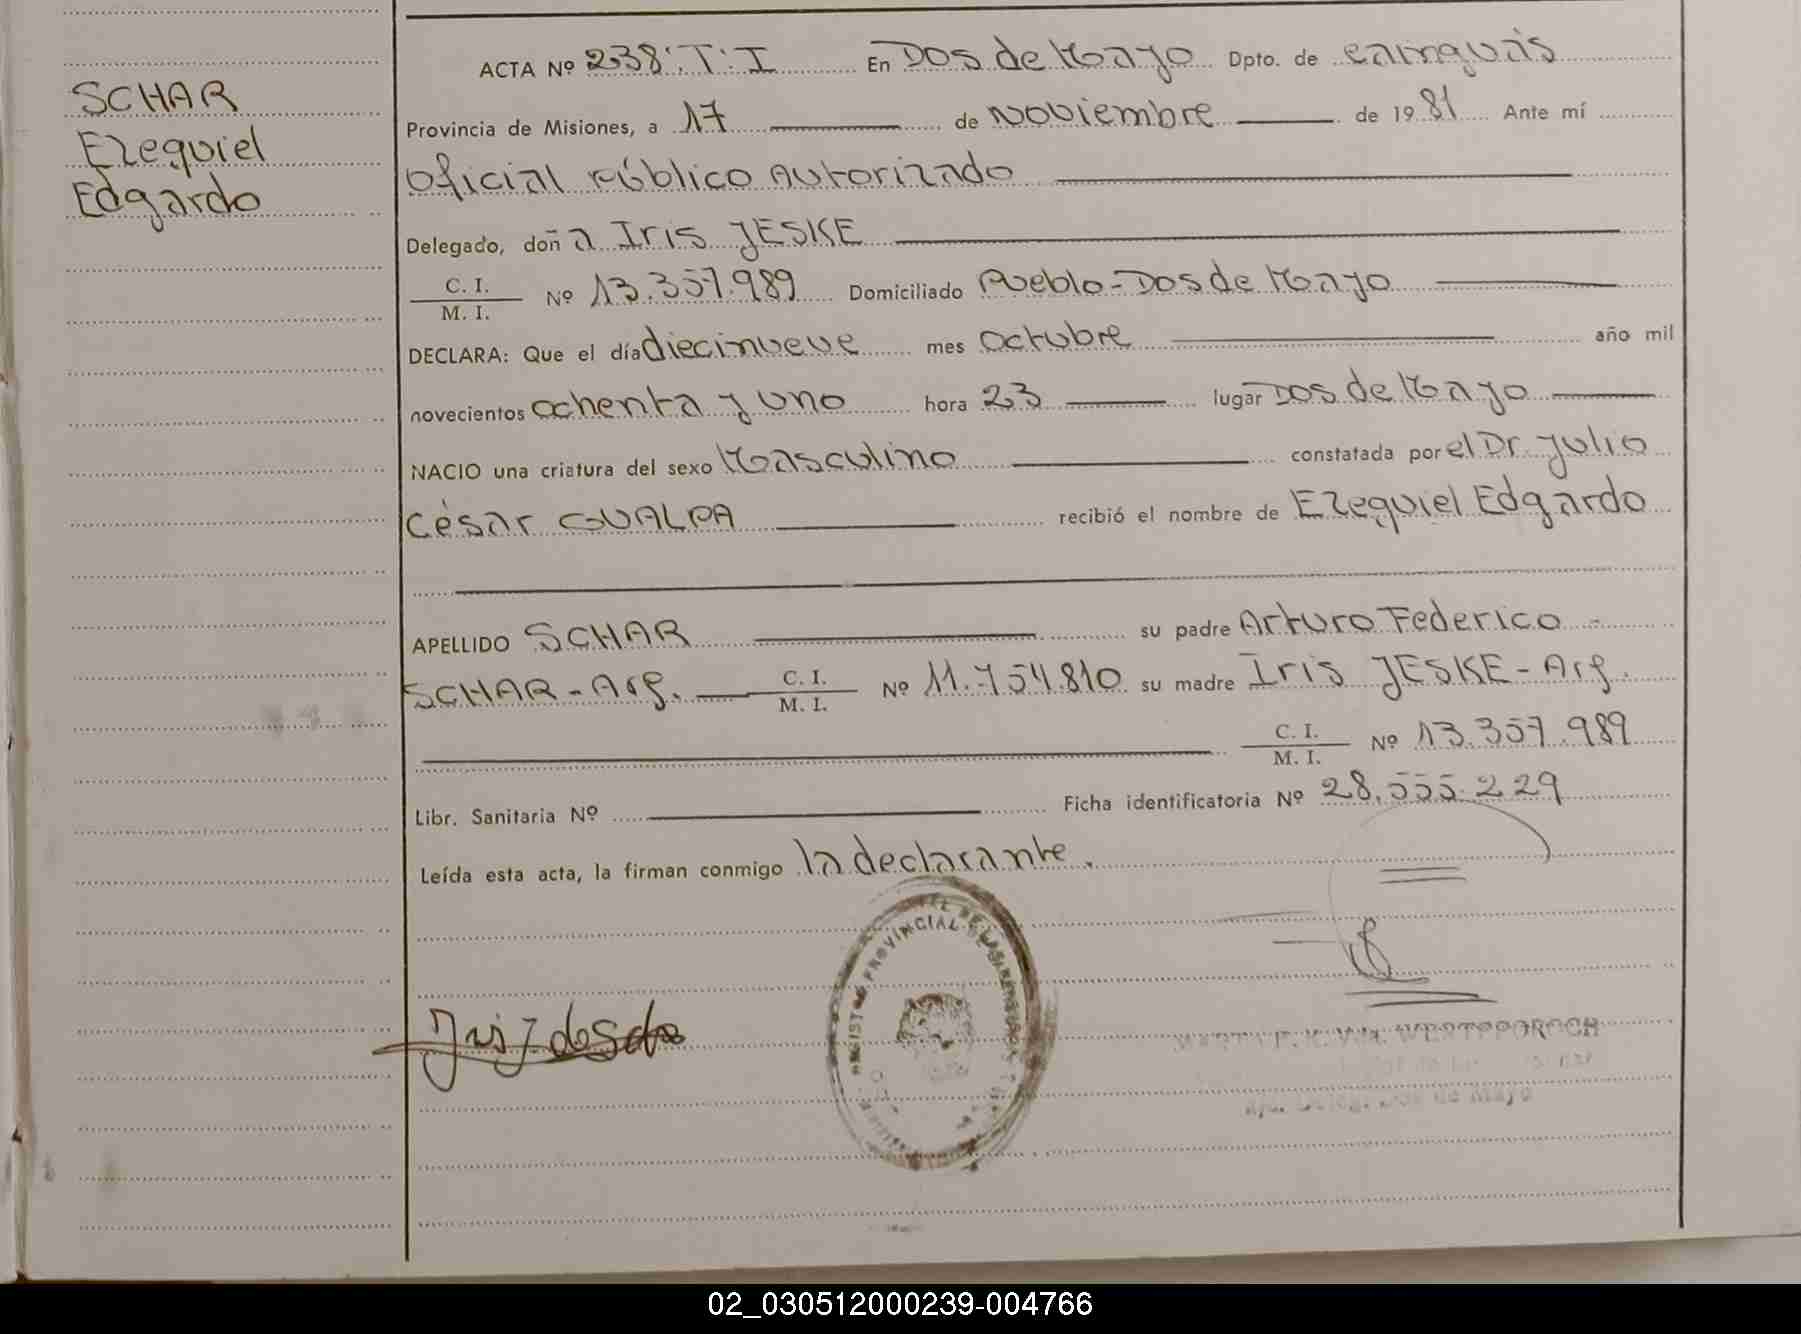 SCHAR
Ezequiel
Edgardo
ACTA Nº 238:T:I En Dos de Mayo Dpto. de Cainguás
Provincia de Misiones, a 17 de Noviembre de 1981 Ante mí
Oficial Público Autorizado
Delegado, doña Iris JESKE
C. I.
M. I. Nº 13.357.989 Domiciliado Pueblo-Dos de Mayo
DECLARA: Que el día diecinueve mes Octubre año mil
novecientos ochenta y uno hora 23 lugar Dos de Mayo
NACIO una criatura del sexo Masculino constatada por el Dr. Julio
César GUALPA recibió el nombre de Ezequiel Edgardo
APELLIDO SCHAR su padre Arturo Federico
SCHAR-Arg. C. I.
M. I. Nº 11.754.810 su madre Iris JESKE-Arg.
C. I.
M. I. Nº 13.357.989
Libr. Sanitaria Nº Ficha identificatoria Nº 28.555.229
Leída esta acta, la firman conmigo la declarante.
PROVINCIAL DE LAS
de Mayo
02_030512000239-004766